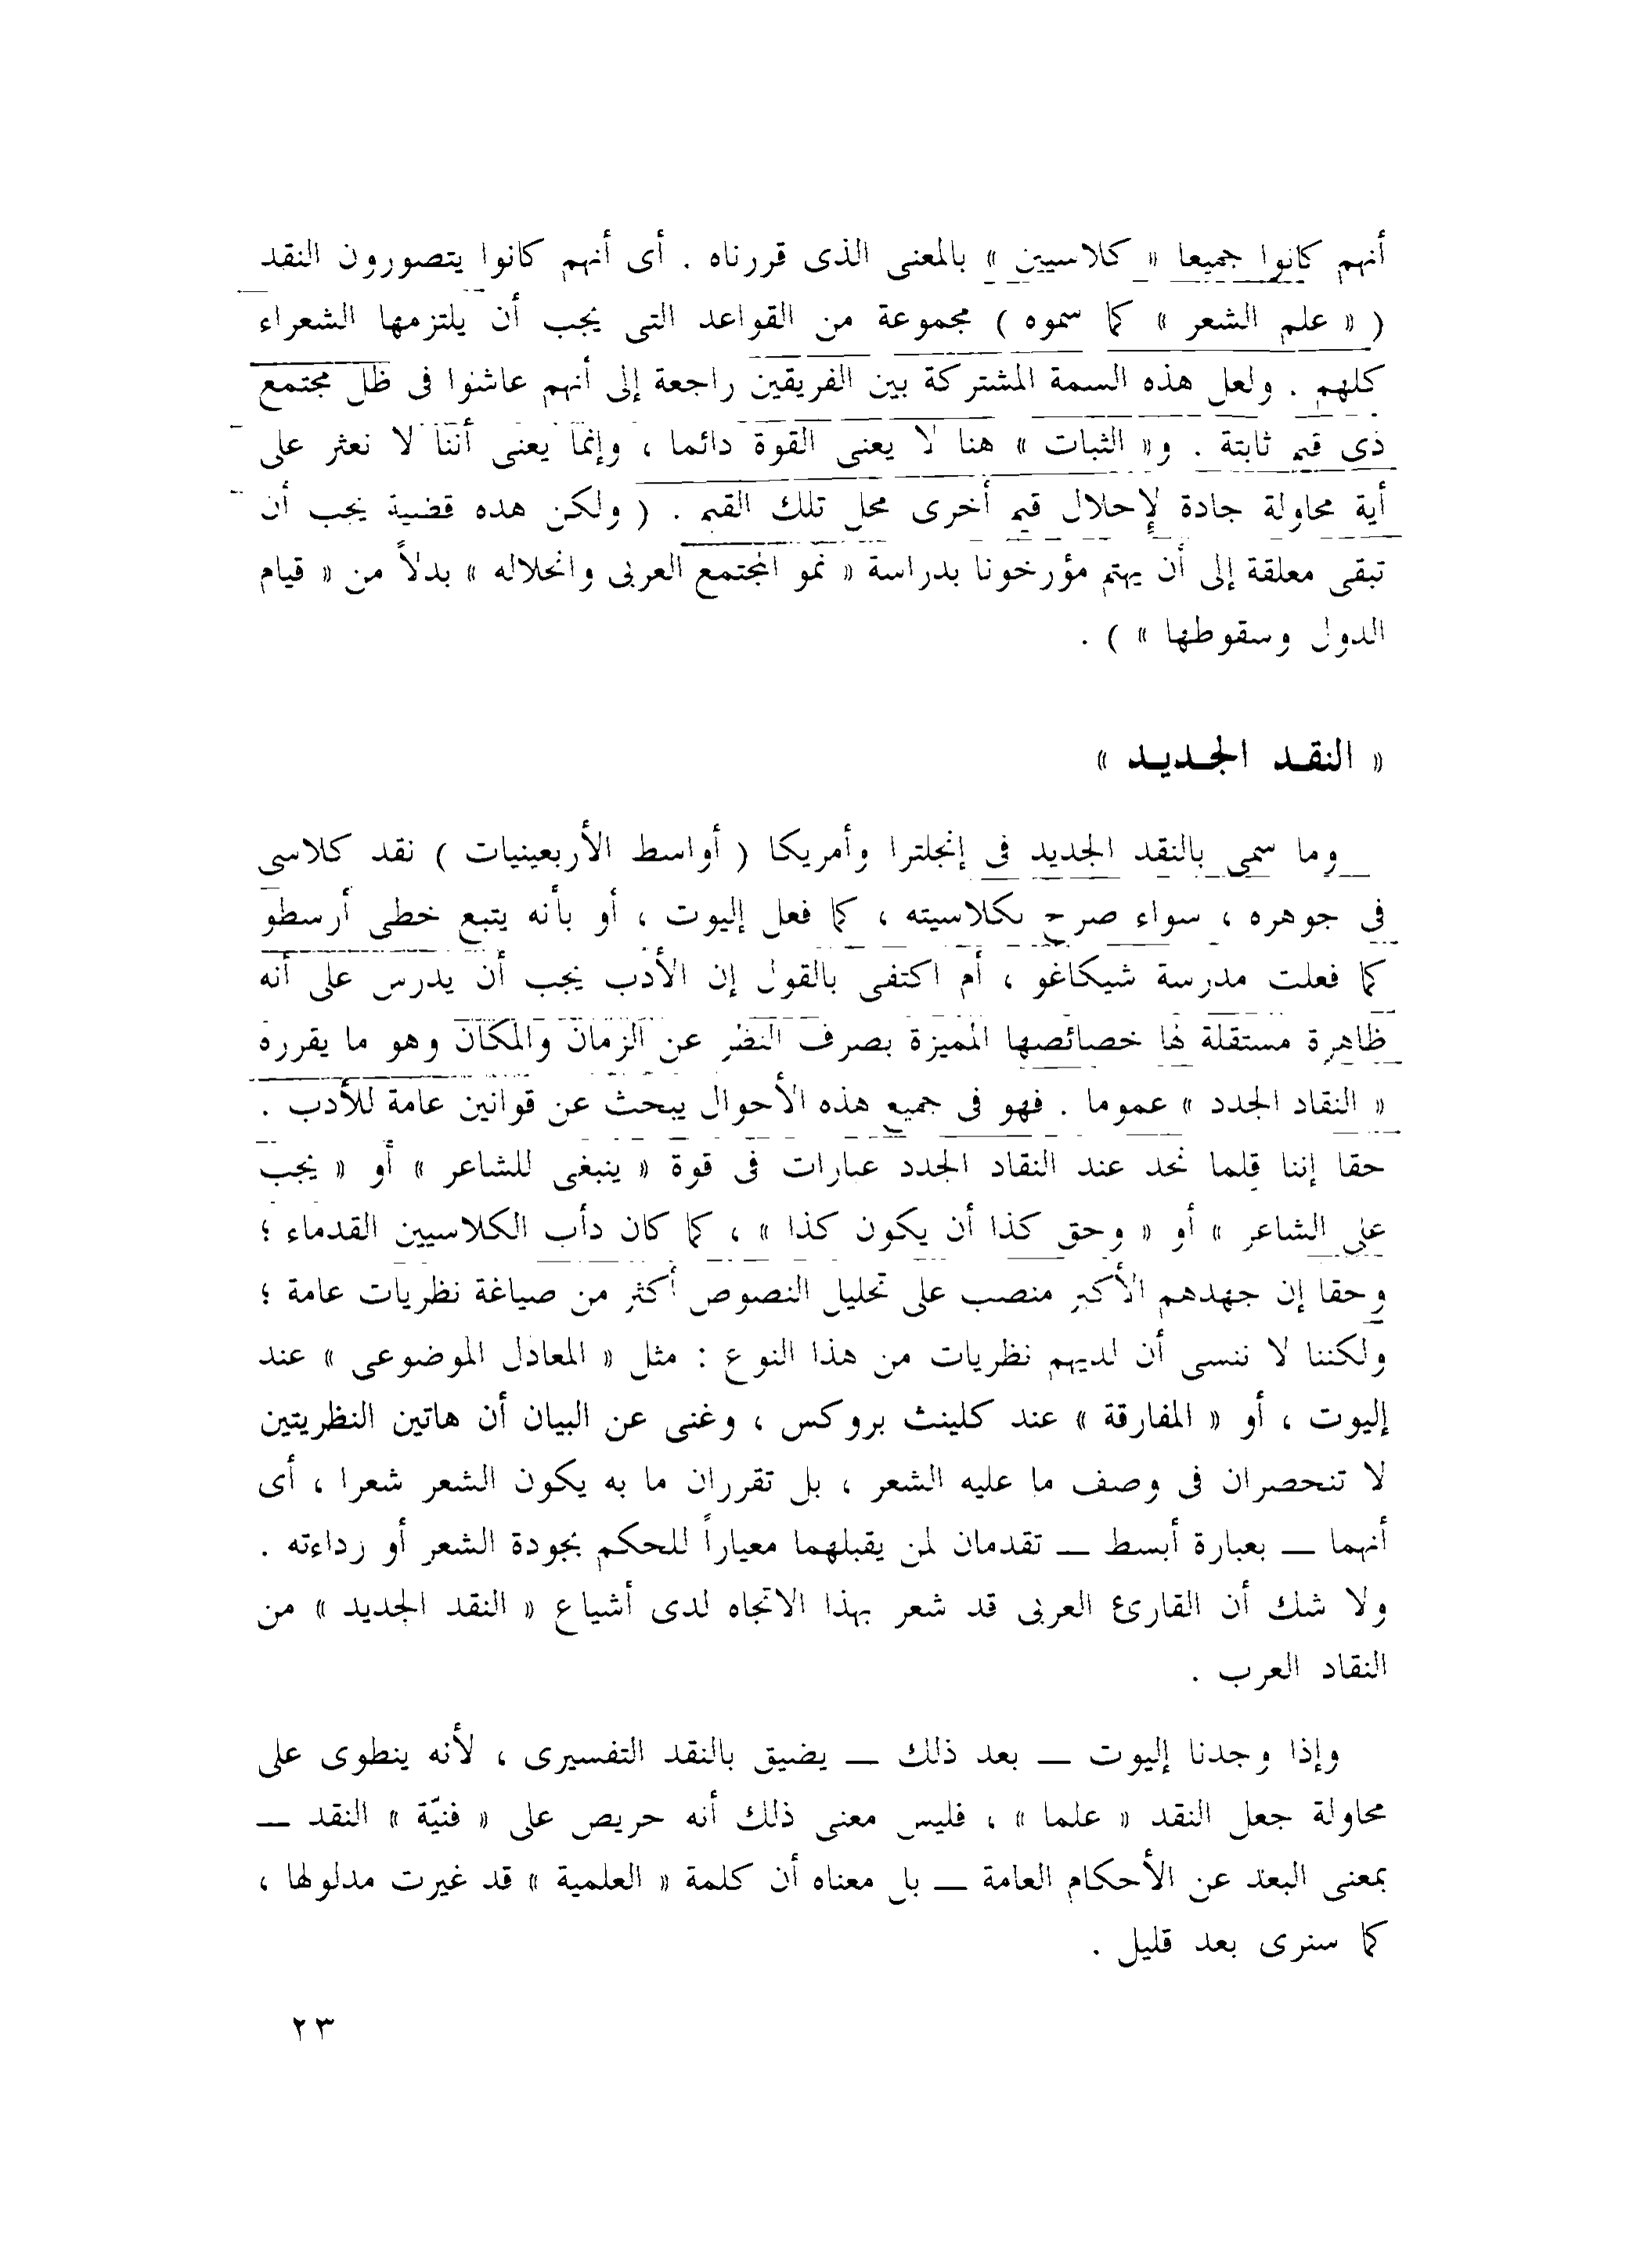 أنهم كانوا جميعا « كلاسيين » بالمعنى الذى قررناه . أى أنهم كانوا يتصورون النقد
( « علم الشعر » كما سموه ) مجموعة من القواعد التى يجب أن يلتزمها الشعراء
كلهم . ولعل هذه السمة المشتركة بين الفريقين راجعة إلى أنهم عاشوا فى ظل مجتمع
ذى قيم ثابتة . و« الثبات » هنا لا يعنى القوة دائما ، وإنما يعنى أننا لا نعثر على
أية محاولة جادة لإحلال قيم أخرى محل تلك القيم . ( ولكن هده قضية يجب أن
تبقى معلقة إلى أن يهتم مؤرخونا بدراسة « نمو المجتمع العربى وانحلاله » بدلاً من « قيام
الدول وسقوطها » ) .
« النقد الجديد »
وما سمى بالنقد الجديد فى إنجلترا وأمريكا ( أواسط الأربعينيات ) نقد كلاسى
فى جوهره ، سواء صرح بكلاسيته ، كما فعل إليوت ، أو بأنه يتبع خطى أرسطو
كما فعلت مدرسة شيكاغو ، أم اكتفى بالقول إن الأدب يجب أن يدرس على أنه
ظاهرة مستقلة لها خصائصها المميزة بصرف النظر عن الزمان والمكان وهو ما يقرره
« النقاد الجدد » عموما . فهو فى جميع هذه الأحوال يبحث عن قوانين عامة للأدب .
حقا إننا قلما نجد عند النقاد الجدد عبارات فى قوة « ينبغى للشاعر » أو « يجب
على الشاعر » أو « وحق كذا أن يكون كذا » ، كما كان دأب الكلاسيين القدماء ؛
وحقا إن جهدهم الأكبر منصب على تحليل النصوص أكثر من صياغة نظريات عامة ؛
ولكننا لا ننسى أن لديهم نظريات من هذا النوع : مثل « المعادل الموضوعى » عند
إليوت ، أو « المفارقة » عند كلينث بروكس ، وغنى عن البيان أن هاتين النظريتين
لا تنحصران فى وصف ما عليه الشعر ، بل تقرران ما به يكون الشعر شعرا ، أى
أنهما — بعبارة أبسط — تقدمان لمن يقبلهما معياراً للحكم بجودة الشعر أو رداءته .
ولا شك أن القارئ العربى قد شعر بهذا الاتجاه لدى أشياع « النقد الجديد » من
النقاد العرب .
وإذا وجدنا إليوت — بعد ذلك — يضيق بالنقد التفسيرى ، لأنه ينطوى على
محاولة جعل النقد « علما » ، فليس معنى ذلك أنه حريص على « فنيّة » النقد —
بمعنى البعد عن الأحكام العامة — بل معناه أن كلمة « العلمية » قد غيرت مدلولها ،
كما سنرى بعد قليل .
٢٣